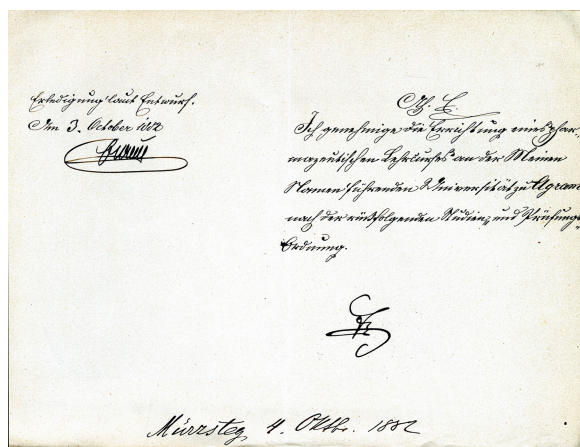 Erledigung laut Entwurf.
Am 3. October 1882
Ich genehmige die Errichtung eines phar-
mazeutischen Lehrcurses an der Meinen
Namen führenden Universität zu Agram
nach der rückfolgenden Studien- und Prüfungs-
Ordnung.
Mürzsteg, 4. Oktbr. 1882